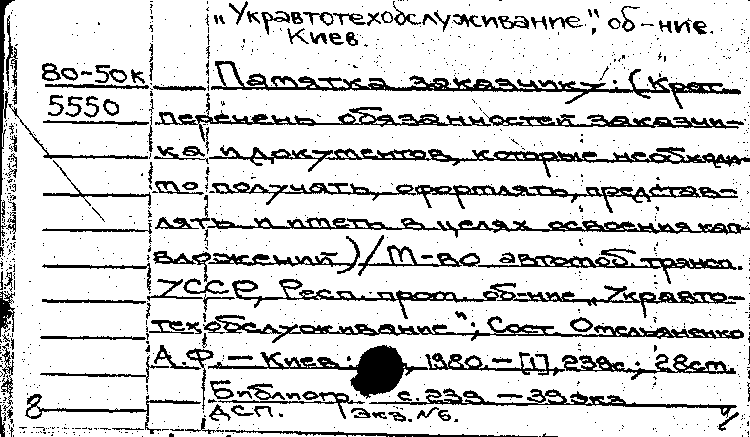 „Укравтотехобслуживание“, об-ние.
Киев.
80-50к Памятка заказчику: (Крат.
5550 перечень обязанностей заказчи-
ка и документов, которые необходи-
мо получать, оформлять, представ-
лять и иметь в целях освоения кап
вложений)/М-во автомоб. трансп.
УССР, Респ. пром. об-ние „Укравто-
техобслуживание"; Сост. Омельяненко
А.Ф. – Киев: , 1980. – [1], 239с.; 28см.
Библиогр. с. 239 – 39 экз.
8 ДСП. Экз. №6.